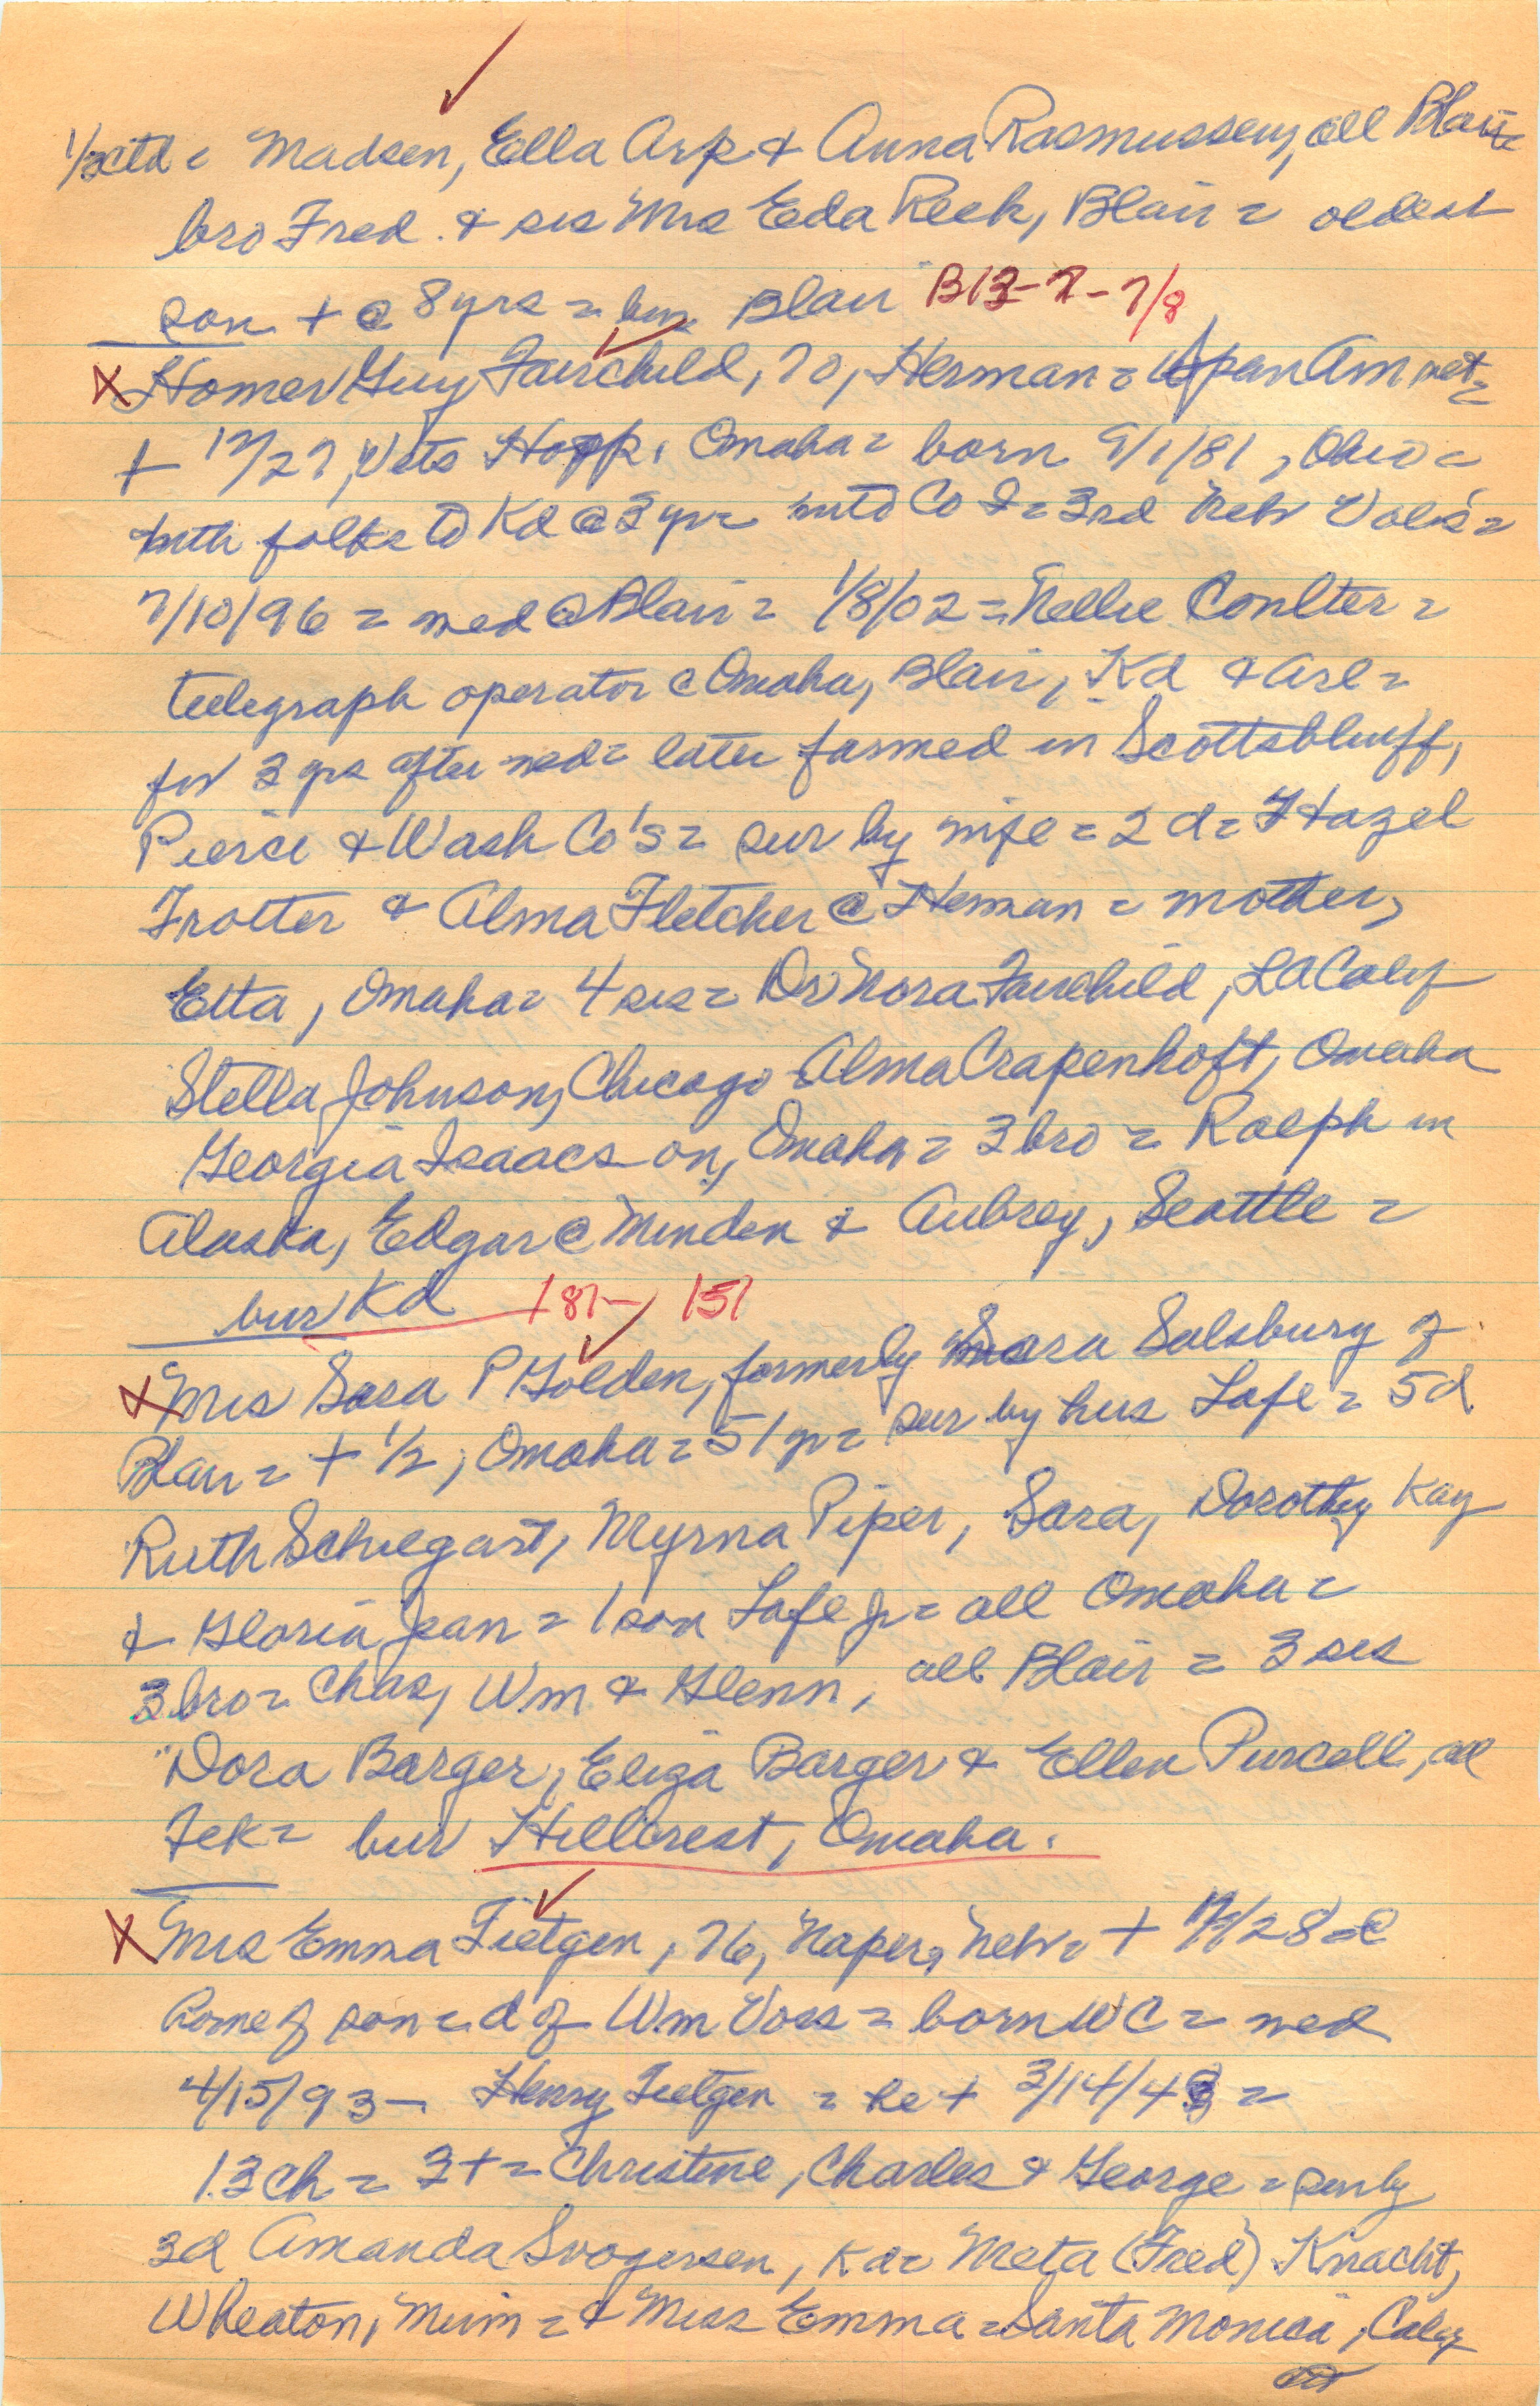 Madsen, Ella Arp & Anna Rasmussen, all Blair =
bro Fred & sis Mrs Eda Reek, Blair = oldest
son + @ 8 yrs = bur Blair B13-7-7/8
X Homer Guy Fairchild, 70, Herman = Span Am vet =
+ 12/27, Vets Hosp, Omaha = born 9/1/81, Ohio =
with folks to Kd @ 3 yr = into Co I = 3rd Neb Vols =
7/10/96 = med @ Blair = 1/8/02 = Nellie Coulter =
telegraph operator @ Omaha, Blair, Kd & Arl =
for 3 yrs after med = later farmed in Scottsbluff,
Pierce & Wash Co's = sur by wife = 2 d = Hazel
Trotter & Alma Fletcher @ Herman = mother,
Etta, Omaha = 4 sis = Dr Nora Fairchild, LA Calif
Stella Johnson, Chicago - Alma Crapenhoft, Omaha
Georgia Isaacson, Omaha = 3 bro = Ralph in
Alaska, Edgar @ Minden & Aubrey, Seattle =
bur Kd 181- 151
X Mrs Sara P Golden, formerly Sara Salsbury of
Blair = + 1/2, Omaha = 51 yr = sur by hus Lafe = 5 d
Ruth Schlegart, Myrna Piper, Sara, Dorothy Kay
& Gloria Jean = 1 son Lafe Jr = all Omaha =
3 bro = Chas, Wm & Glenn, all Blair = 3 sis
Dora Barger, Eliza Barger & Ellen Purcell, all
Tek = bur Hillcrest, Omaha.
X Mrs Emma Tietgen, 76, Naper, Neb = + 12/28 = @
home of son = d of Wm Voss = born WC = med
4/15/93 - Henry Tietgen = he + 3/14/43 =
13 ch = 3 + = Christine, Charles & George = sur by
3 d Amanda Svogersen, Kd = Meta (Fred) Knacht,
Wheaton, Minn = & Miss Emma = Santa Monica, Calif